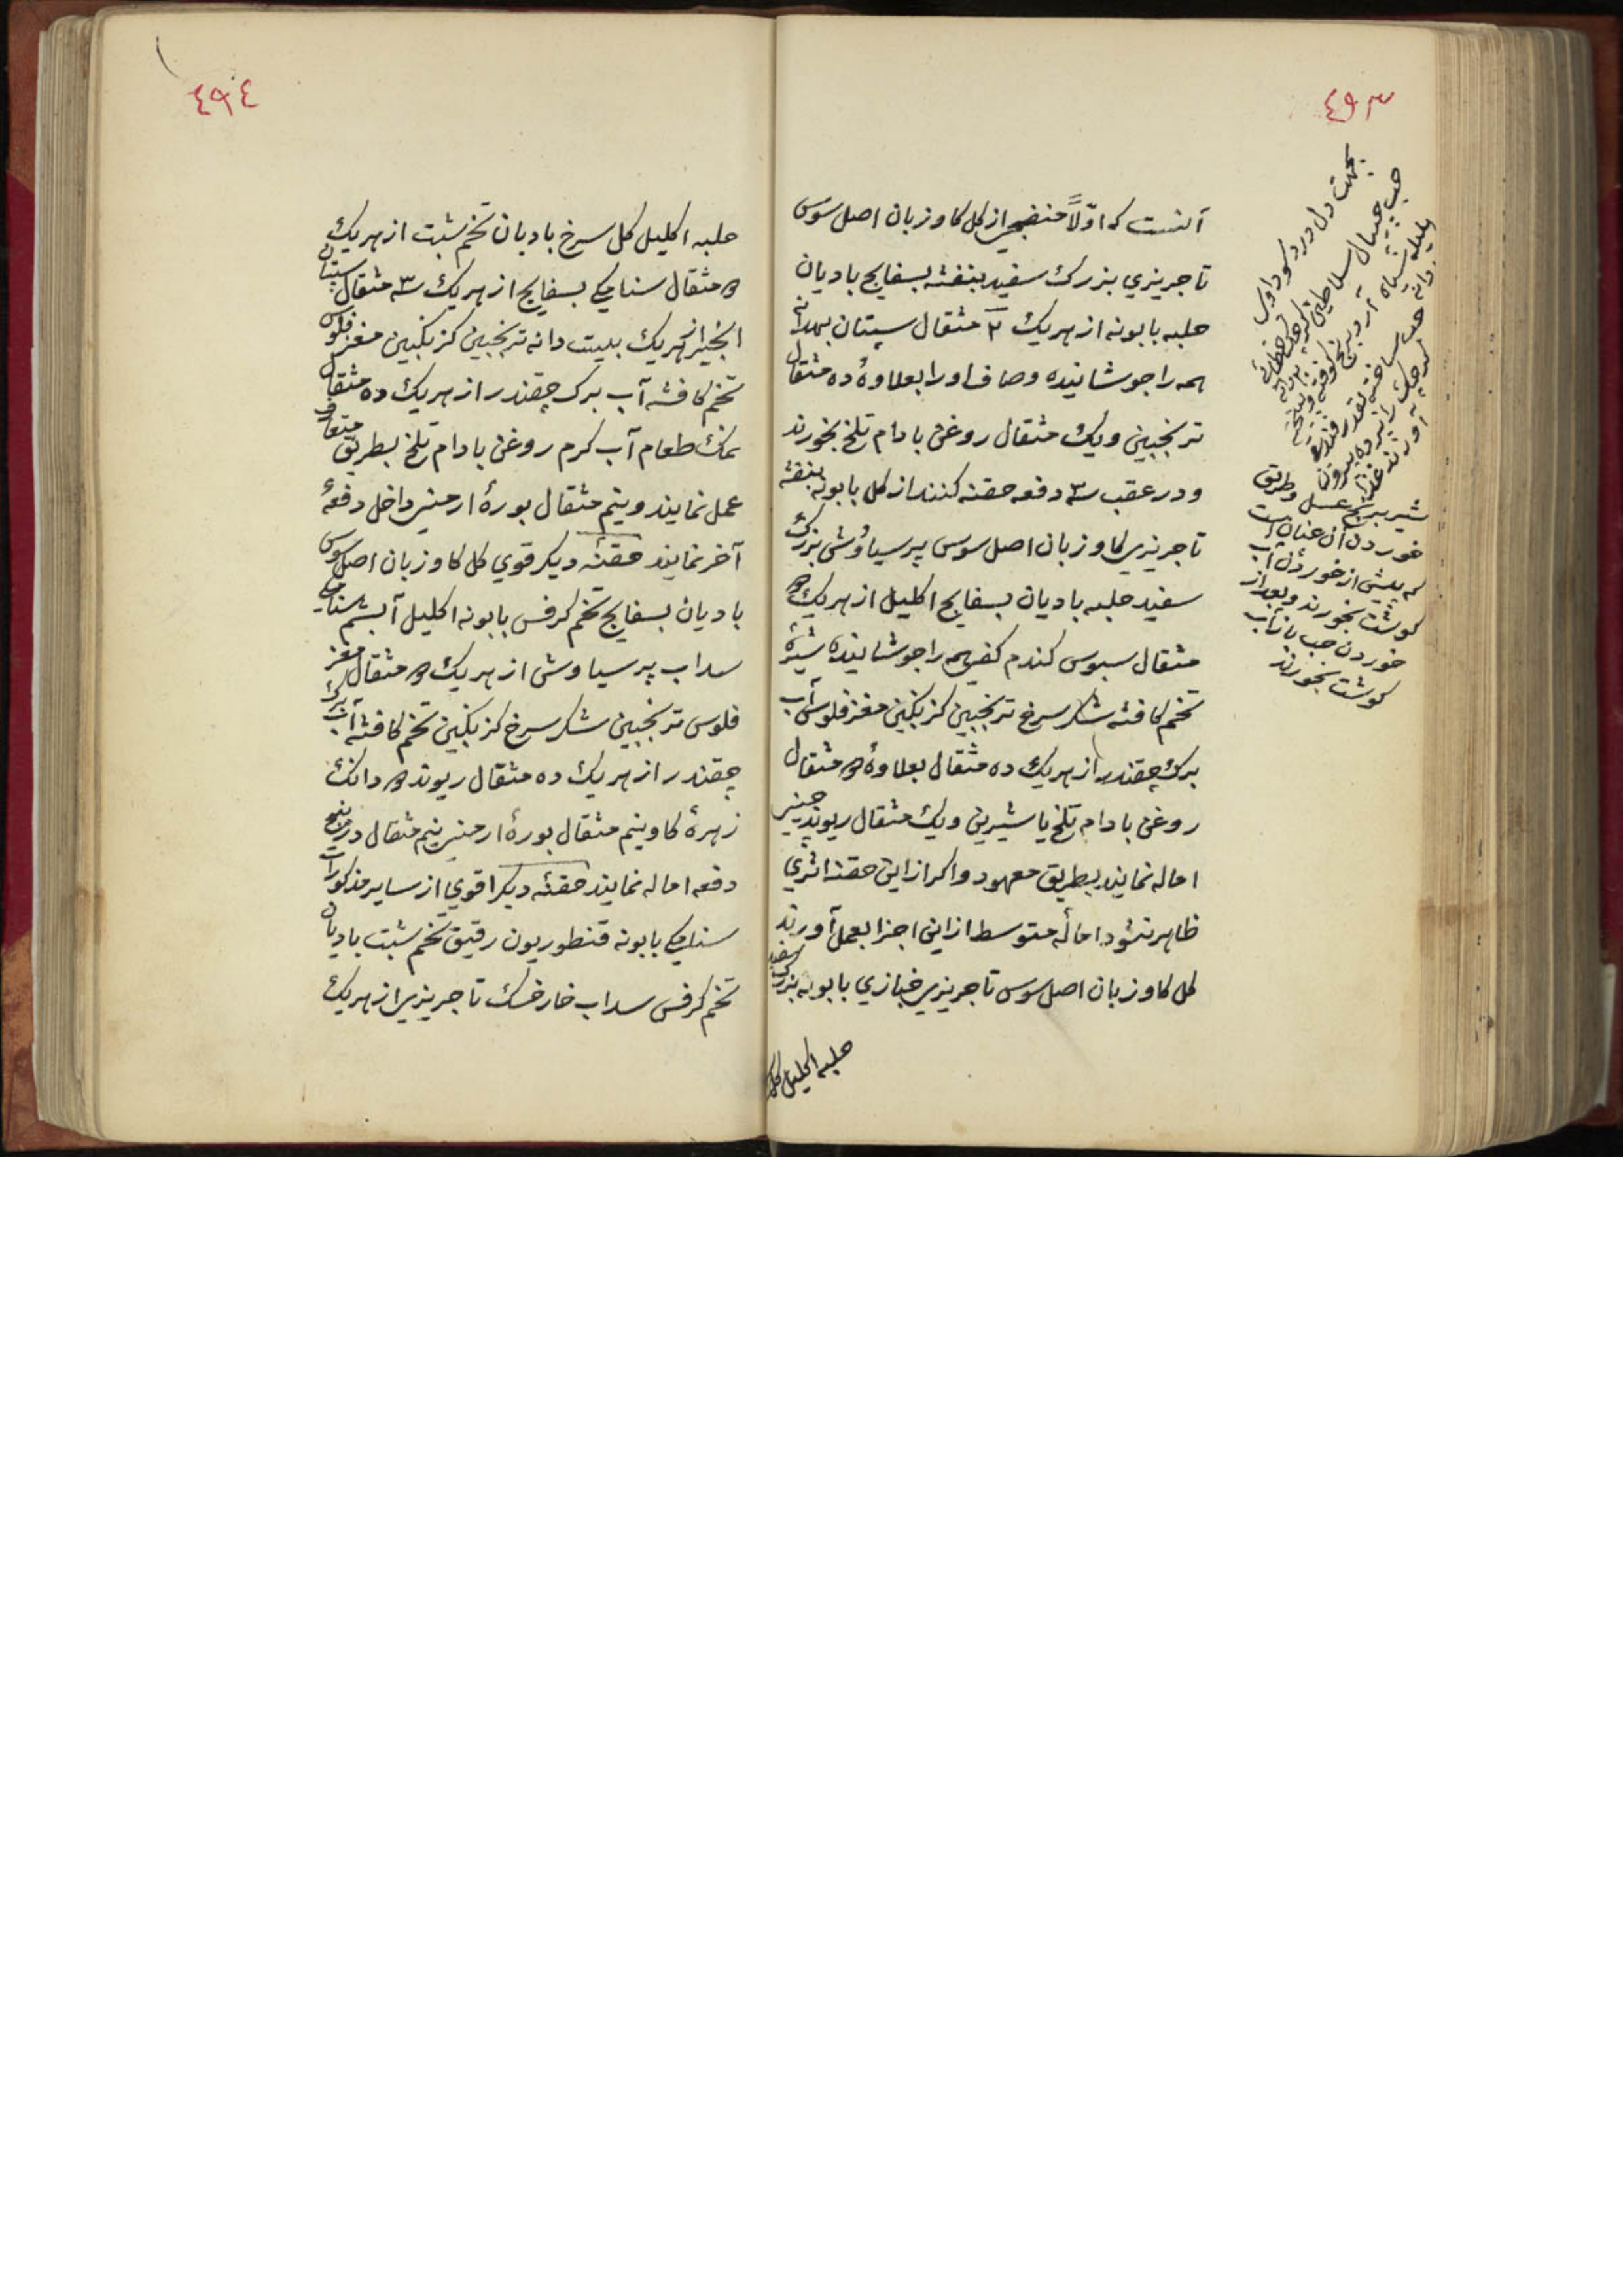 ٤٩٣
آنست که اوّلاً منضجی از کل کاوزبان اصل سوس
تاجریزي بزرك سفید بنفشه بسفایج بادیان
حلبه بابونه از هریك ۲ مثقال سپستان بهدانه
همه را جوشانیده و صاف او را بعلاوهٔ ده مثقال
ترنجبین ویك مثقال روغن بادام تلخ بخورند
و در عقب سه دفعه حقنه کنند از کل بابونه بنفشه
تاجریزي کاوزبان اصل سوس پرسیاوُشی بزرك
سفید حلبه بادیان بسفایج اکلیل از هریك
مثقال سبوس کندم کفی همه را جوشانیده شیرهٔ
تخم کافشه شکر سرخ ترنجبین کزنکبین مغز فلوس آب
برك چقندر از هریك ده مثقال بعلاوهٔ مثقال
روغن بادام تلخ یا شیرین ویك مثقال ریوند چینی
اماله نمایند بطریق معهود و اکر از این حقنه اثري
ظاهر نشود امالهٔ متوسط از این اجزا بعمل آورند
کل کاوزبان اصل سوس تاجریزي خبازي بابونه بزرك سفید
حلبه اکلیل کل
بجهت دل درد سوداوي
حب جیپال سلاطین
هلیله سیاه آرد برنج کوفته و بیخته
حب ساخته بقدر فندق
شیر برنج عسل و طریق
خوردن آن چنان است
که پیش از خوردن آب
کوشت بخورند و بعد از
خوردن حب باز آب
کوشت بخورند
٤٩٤
حلبه اکلیل کل سرخ بادیان تخم شبت از هریك
مثقال سنامکي بسفایج از هریك سه مثقال سپستان
انجیر از هریك بیست دانه ترنجبین کزنکبین مغز فلوس
تخم کافشه آب برك چقندر از هریك ده مثقال
نمك طعام آب کرم روغن بادام تلخ بطریق متعارف
عمل نمایند و نیم مثقال بورهٔ ارمنی داخل دفعهٔ
آخر نمایند حقنهٔ دیکر قوي کل کاوزبان اصل سوس
بادیان بسفایج تخم کرفس بابونه اکلیل آبشم سنامکي
سداب پرسیاوشی از هریك مثقال مغز
فلوس ترنجبین شکر سرخ کزنکبین تخم کافشه آب برك
چقندر از هریك ده مثقال ریوند دانك
زهرهٔ کاو نیم مثقال بورهٔ ارمنی نیم مثقال در پنج
دفعه اماله نمایند حقنهٔ دیکر اقوي از سایر مذکورات
سنامکي بابونه قنطوریون رقیق تخم شبت بادیان
تخم کرفس سداب خارخسك تاجریزي از هریك